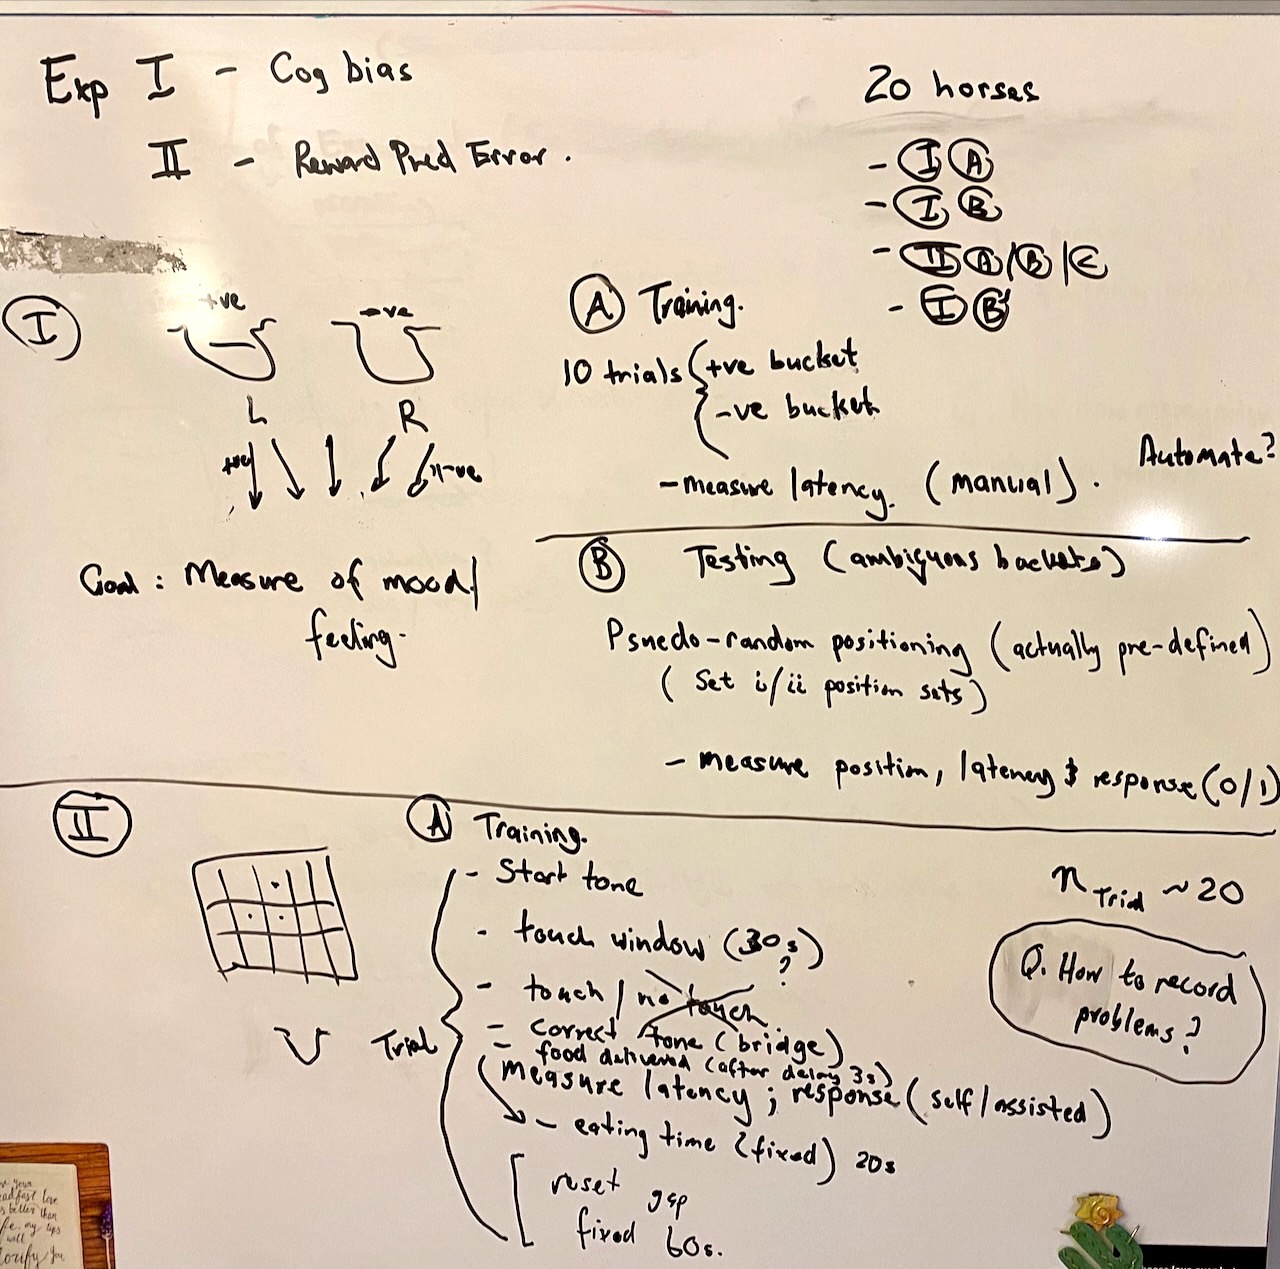 Exp I - Cog bias
II - Reward Pred Error.
20 horses
- I A
- I B
- II A/B/C
- I B'
I
+ve
-ve
L R
+ve -ve
Goal : Measure of mood/
feeling.
A Training.
10 trials +ve bucket
-ve bucket
- measure latency. (manual).
Automate?
B Testing (ambiguous buckets)
Psuedo-random positioning (actually pre-defined)
(Set i/ii position sets)
- measure position, latency & response (0/1)
II
A Training.
- Start tone
- touch window (30s)
?
- touch / no touch
- correct tone (bridge)
- food delivered (after delay 3s)
measure latency ; response (self/assisted)
- eating time (fixed) 20s
reset gap
fixed 60s.
Trial
n Trial ~ 20
Q. How to record
problems?
your
love
better than
my lips
will
glorify you